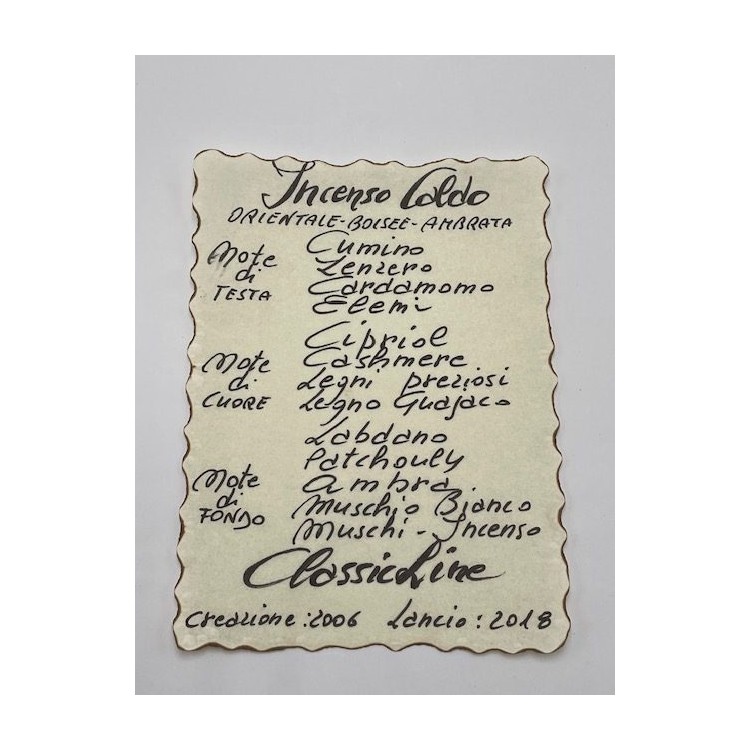 Incenso Caldo
ORIENTALE-BOISEE-AMBRATA
Note di TESTA
Cumino
Zenzero
Cardamomo
Elemi
Note di CUORE
Cipriol
Cashmere
Legni preziosi
Legno Guajaco
Note di FONDO
Labdano
Patchouly
Ambra
Muschio Bianco
Muschi-Incenso
ClassicLine
Creazione:2006 Lancio:2018